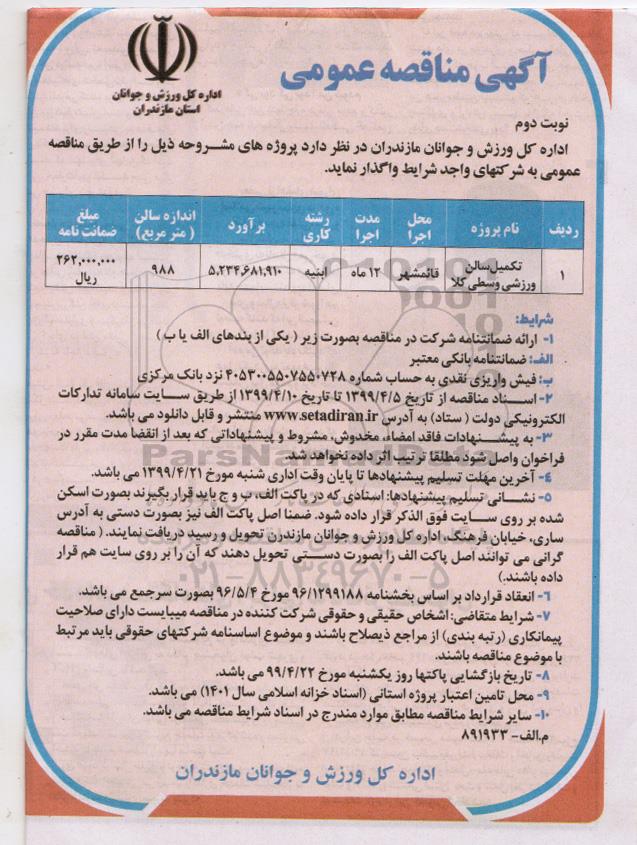 اداره کل ورزش و جوانان
استان مازندران
آگهی مناقصه عمومی
نوبت دوم
اداره کل ورزش و جوانان مازندران در نظر دارد پروژه های مشروحه ذیل را از طریق مناقصه
عمومی به شرکتهای واجد شرایط واگذار نماید.
ردیف | نام پروژه | محل اجرا | مدت اجرا | رشته کاری | برآورد | اندازه سالن (متر مربع) | مبلغ ضمانت نامه
۱ | تکمیل سالن ورزشی وسطی کلا | قائمشهر | ۱۲ ماه | ابنیه | ۵,۲۳۴,۶۸۱,۹۱۰ | ۹۸۸ | ۲۶۲,۰۰۰,۰۰۰ ریال
شرایط:
۱- ارائه ضمانتنامه شرکت در مناقصه بصورت زیر ( یکی از بندهای الف یا ب )
الف: ضمانتنامه بانکی معتبر
ب: فیش واریزی نقدی به حساب شماره ۴۰۵۳۰۰۵۵۰۷۵۵۰۷۲۸ نزد بانک مرکزی
۲- اسناد مناقصه از تاریخ ۱۳۹۹/۴/۵ تا تاریخ ۱۳۹۹/۴/۱۰ از طریق سایت سامانه تدارکات
الکترونیکی دولت ( ستاد) به آدرس www.setadiran.ir منتشر و قابل دانلود می باشد.
۳- به پیشنهادات فاقد امضاء، مخدوش، مشروط و پیشنهاداتی که بعد از انقضا مدت مقرر در
فراخوان واصل شود مطلقا ترتیب اثر داده نخواهد شد.
۴- آخرین مهلت تسلیم پیشنهادها تا پایان وقت اداری شنبه مورخ ۱۳۹۹/۴/۲۱ می باشد.
۵- نشانی تسلیم پیشنهادها: اسنادی که در پاکت الف، ب و ج باید قرار بگیرند بصورت اسکن
شده بر روی سایت فوق الذکر قرار داده شود. ضمنا اصل پاکت الف نیز بصورت دستی به آدرس
ساری، خیابان فرهنگ، اداره کل ورزش و جوانان مازندرن تحویل و رسید دریافت نمایند. ( مناقصه
گرانی می توانند اصل پاکت الف را بصورت دستی تحویل دهند که آن را بر روی سایت هم قرار
داده باشند.)
۶- انعقاد قرارداد بر اساس بخشنامه ۹۶/۱۲۹۹۱۸۸ مورخ ۹۶/۵/۴ بصورت سرجمع می باشد.
۷- شرایط متقاضی: اشخاص حقیقی و حقوقی شرکت کننده در مناقصه میبایست دارای صلاحیت
پیمانکاری (رتبه بندی) از مراجع ذیصلاح باشند و موضوع اساسنامه شرکتهای حقوقی باید مرتبط
با موضوع مناقصه باشند.
۸- تاریخ بازگشایی پاکتها روز یکشنبه مورخ ۹۹/۴/۲۲ می باشد.
۹- محل تامین اعتبار پروژه استانی (اسناد خزانه اسلامی سال ۱۴۰۱) می باشد.
۱۰- سایر شرایط مناقصه مطابق موارد مندرج در اسناد شرایط مناقصه می باشد.
م.الف- ۸۹۱۹۳۳
اداره کل ورزش و جوانان مازندران
۰۲۱-۸۸۳۴۹۶۷۰-۵